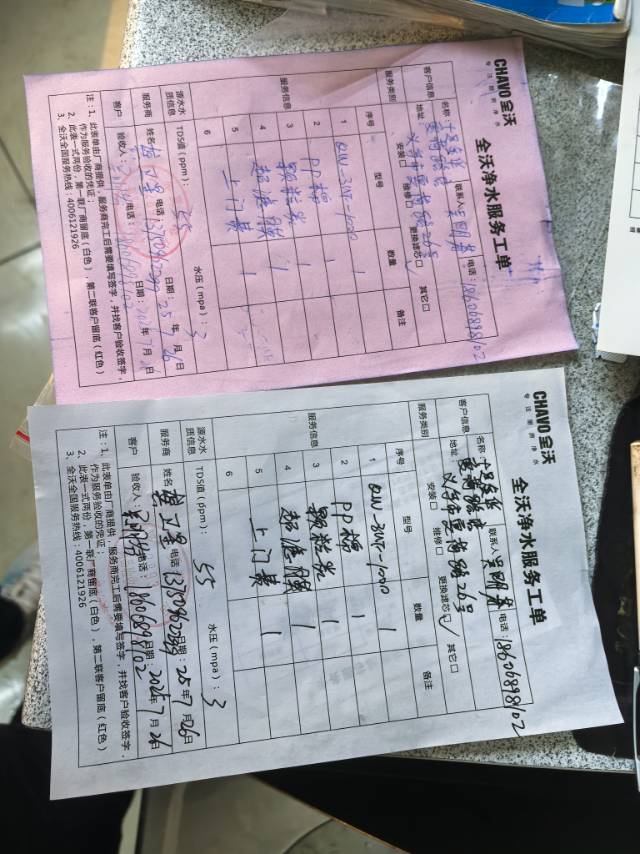 CHAVO全沃
专注厨房净水
全沃净水服务工单
客户信息
名称:
联系人
电话:18606898102
地址
26号
服务类别
安装口
维修口
更换滤芯口
其它口
服务信息
序号
型号
数量
备注
1
1
2
PP棉
1
3
颗粒炭
1
4
超滤膜
1
5
上门费
1
6
源水水质信息
TDS值(ppm):
55
水压(mpa):
3
服务商
姓名
电话
日期:25年7月26日
客户
验收人:
电话:18606898102
日期:
年7月
日
注:1、此表单由厂商提供,服务商完工后需要填写签字,并找客户验收签字,
作为服务验收的凭证;
2、此表一式两份,第一联厂商留底(白色),第二联客户留底(红色)
3、全沃全国服务热线:4006121926
CHAVO全沃
专注厨房净水
全沃净水服务工单
客户信息
名称:
联系人
电话:18606898102
地址
26号
服务类别
安装口
维修口
更换滤芯口✓
其它口
服务信息
序号
型号
数量
备注
1
1
2
PP棉
1
3
颗粒炭
1
4
超滤膜
1
5
上门费
1
6
源水水质信息
TDS值(ppm):
55
水压(mpa):
3
服务商
姓名
电话
日期:25年7月26日
客户
验收人:
电话:18606898102
日期:
年7月
日
注:1、此表单由厂商提供,服务商完工后需要填写签字,并找客户验收签字,
作为服务验收的凭证;
2、此表一式两份,第一联厂商留底(白色),第二联客户留底(红色)
3、全沃全国服务热线:4006121926